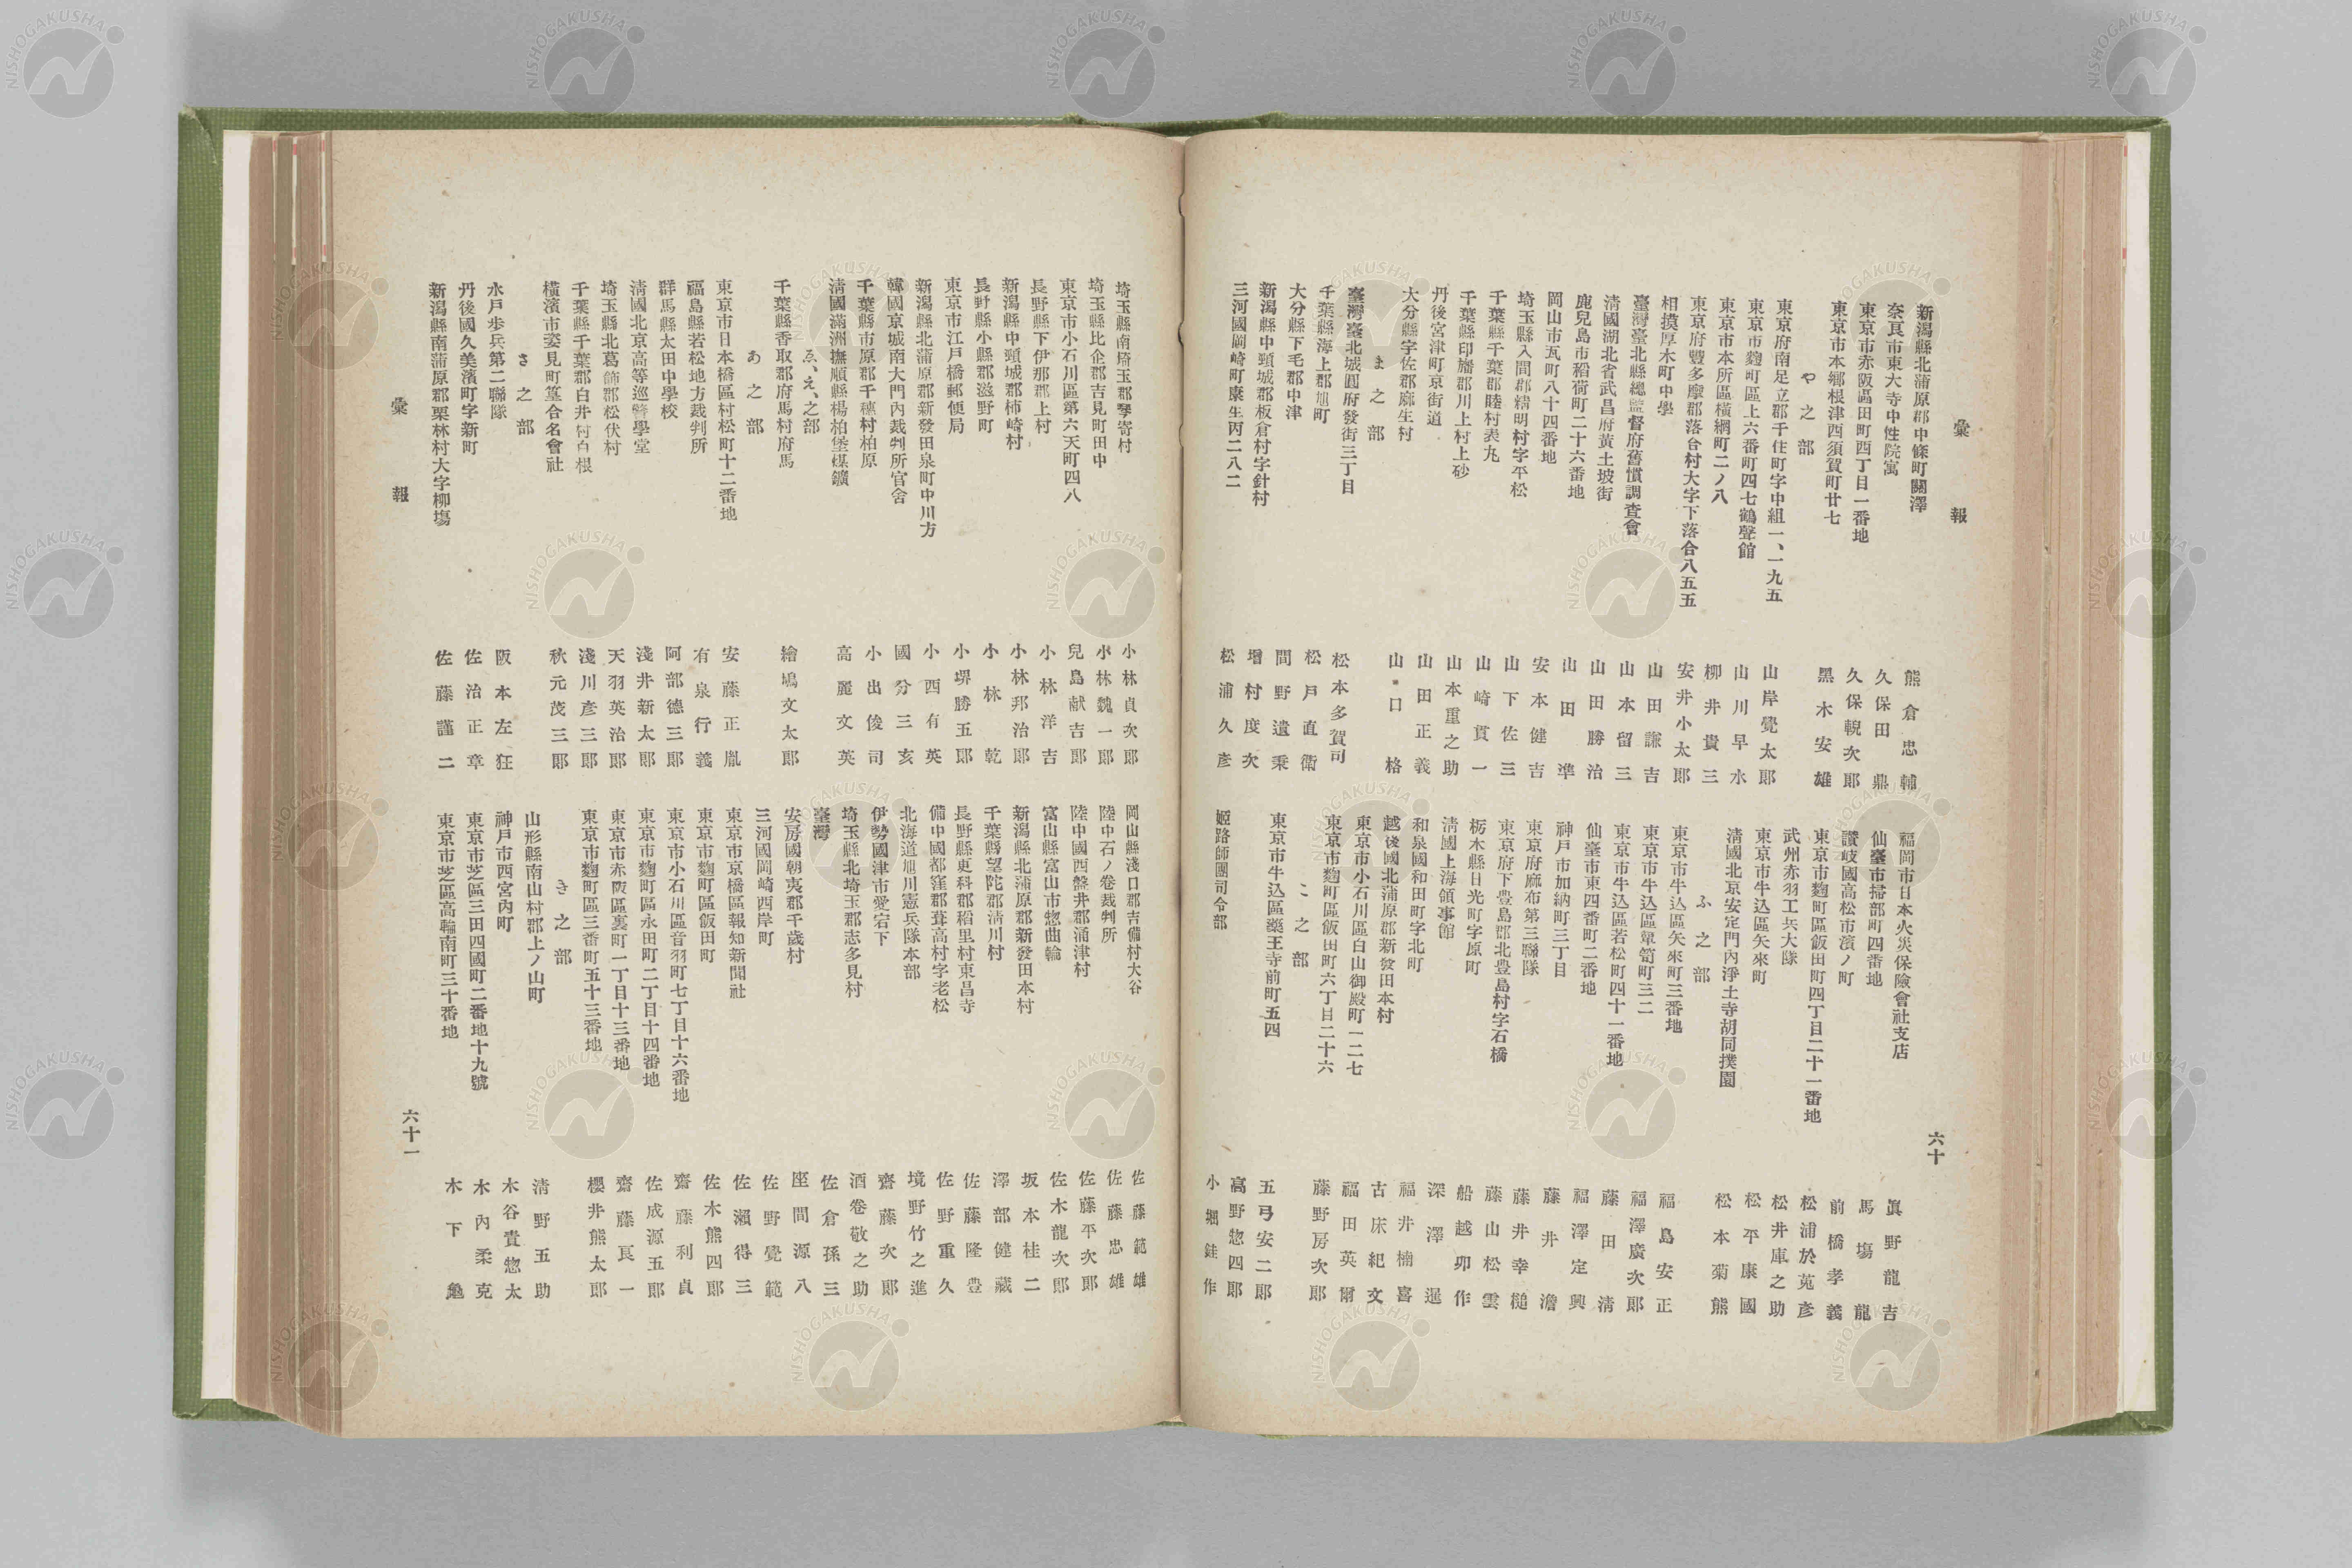 彙報
新潟縣北蒲原郡中條町關澤 熊倉忠輔
奈良市東大寺中性院寓 久保田鼎
東京市赤阪區田町四丁目一番地 久保輗次郎
東京市本郷根津西須賀町廿七 黑木安雄
や之部
東京府南足立郡千住町字中組一、一九五 山岸覺太郎
東京市麴町區上六番町四七鶴聲館 山川早水
東京市本所區橫網町二ノ八 柳井貴三
東京府豐多摩郡落合村大字下落合八五五 安井小太郎
相摸厚木町中學 山田謙吉
臺灣臺北縣總監督府舊慣調查會 山本留三
淸國湖北省武昌府黃土坡街 山田勝治
鹿兒島市稻荷町二十六番地 山田準
岡山市瓦町八十四番地 安本健吉
埼玉縣入間郡精明村字平松 山下佐三
千葉縣千葉郡睦村表丸 山崎貫一
千葉縣印旛郡川上村上砂 山本重之助
丹後宮津町京街道 山田正義
大分縣宇佐郡麻生村 山口格
ま之部
臺灣臺北城圓府發街三丁目 松本多賀司
千葉縣海上郡旭町 松戶直衛
大分縣下毛郡中津 間野遺秉
新潟縣中頸城郡板倉村字針村 增村度次
三河國岡崎町康生丙二八二 松浦久彥
福岡市日本火災保險會社支店 眞野龍吉
仙臺市掃部町四番地 馬場龍
讚岐國高松市濱ノ町 前橋孝義
東京市麴町區飯田町四丁目二十一番地 松浦於菟彥
武州赤羽工兵大隊 松井庫之助
東京市牛込區矢來町 松平康國
淸國北京安定門內淨土寺胡同撲園 松本菊熊
ふ之部
東京市牛込區矢來町三番地 福島安正
東京市牛込區簞笥町三二 福澤廣次郎
東京市牛込區若松町四十一番地 藤田淸
仙臺市東四番町二番地 福澤定興
神戶市加納町三丁目 藤井澹
東京府麻布第三聯隊 藤井幸槌
東京府下豊島郡北豊島村字石橋 藤山松雲
栃木縣日光町字原町 船越卯作
淸國上海領事館 深澤暹
和泉國和田町字北町 福井楠喜
越後國北蒲原郡新發田本村 古床紀文
東京市小石川區白山御殿町一二七 福田英爾
東京市麴町區飯田町六丁目二十六 藤野房次郎
こ之部
東京市牛込區藥王寺前町五四 五弓安二郎
高野惣四郎
姬路師團司令部 小堀銈作
六十
埼玉縣南埼玉郡孯寄村 小林貞次郎
埼玉縣比企郡吉見町田中 小林魏一郎
東京市小石川區第六天町四八 兒島献吉郎
長野縣下伊那郡上村 小林洋吉
新潟縣中頸城郡柿崎村 小林邦治郎
長野縣小縣郡滋野町 小林乾
東京市江戶橋郵便局 小堺勝五郎
新潟縣北蒲原郡新發田泉町中川方 小西有英
韓國京城南大門內裁判所官舍 國分三亥
千葉縣市原郡千穗村柏原 小出俊司
淸國滿洲撫順縣楊柏堡煤鑛 高麗文英
ゑ、え、之部
千葉縣香取郡府馬村府馬 繪鳩文太郎
あ之部
東京市日本橋區村松町十二番地 安藤正胤
福島縣若松地方裁判所 有泉行義
群馬縣太田中學校 阿部德三郎
淸國北京高等巡警學堂 淺井新太郎
埼玉縣北葛飾郡松伏村 天羽英治郎
千葉縣千葉郡白井村白根 淺川彥三郎
橫濱市姿見町篁合名會社 秋元茂三郎
さ之部
水戶步兵第二聯隊 阪本左狂
丹後國久美濱町字新町 佐治正章
新潟縣南蒲原郡栗林村大字柳塲 佐藤謹二
岡山縣淺口郡吉備村大谷 佐藤範雄
陸中石ノ卷裁判所 佐藤忠雄
陸中國西盤井郡涌津村 佐藤平次郎
富山縣富山市惣曲輪 佐木龍次郎
新潟縣北蒲原郡新發田本村 坂本桂二
千葉縣望陀郡淸川村 澤部健藏
長野縣更科郡稻里村東昌寺 佐藤隆豊
備中國都窪郡葺高村字老松 佐野重久
北海道旭川憲兵隊本部 境野竹之進
伊勢國津市愛宕下 齋藤次郎
埼玉縣北埼玉郡志多見村 酒卷敬之助
臺灣 佐倉孫三
安房國朝夷郡千歲村 座間源八
三河國岡崎西岸町 佐野覺範
東京市京橋區報知新聞社 佐瀨得三
東京市麴町區飯田町 佐木熊四郎
東京市小石川區音羽町七丁目十六番地 齋藤利貞
東京市麴町區永田町二丁目十四番地 佐成源五郎
東京市赤阪區裏町一丁目十三番地 齋藤良一
東京市麴町區三番町五十三番地 櫻井熊太郎
き之部
山形縣南山村郡上ノ山町 淸野五助
神戶市西宮內町 木谷貴惣太
東京市芝區三田四國町二番地十九號 木內柔克
東京市芝區高輪南町三十番地 木下亀
彙報
六十一
NISHOGAKUSHA